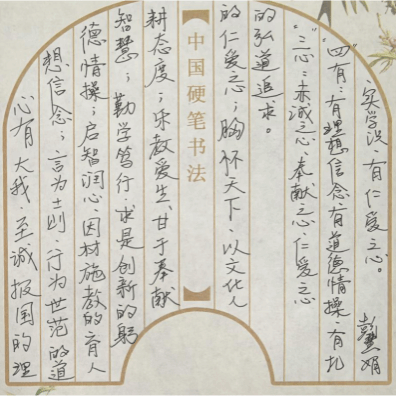 心有大我、至诚报国的理
想信念；言为士则、行为世范的道
德情操；启智润心、因材施教的育人
智慧；勤学笃行、求是创新的躬
耕态度；乐教爱生、甘于奉献
中国硬笔书法
的仁爱之心；胸怀天下、以文化人
的弘道追求。
“三心”：赤诚之心、奉献之心、仁爱之心
“四有”：有理想信念、有道德情操、有扎
实学识、有仁爱之心。
娟